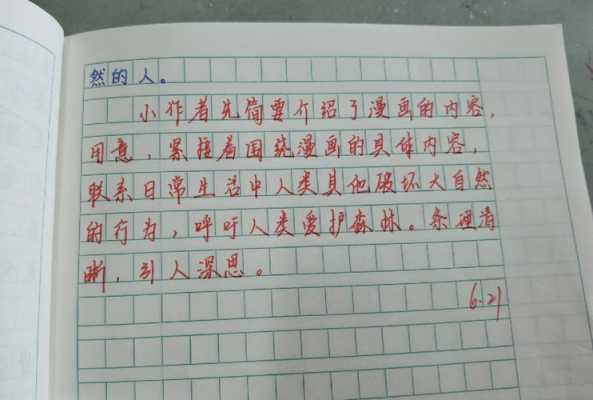 然的人。
小作者先简要介绍了漫画的内容，
用意，紧接着围绕漫画的具体内容，
联系日常生活中人类其他破坏大自然
的行为，呼吁人类爱护森林。条理清
晰，引人深思。
6.21